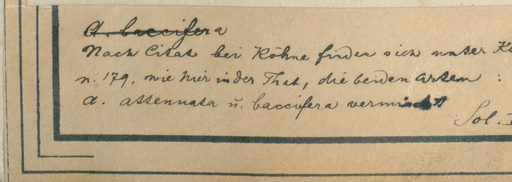 A. baccifera
Nach Citat bei Köhne finden sich unter Ko
n. 179. wie hier in der That, die beiden Arten :
A. attenuata u. baccifera vermischt
Sol.